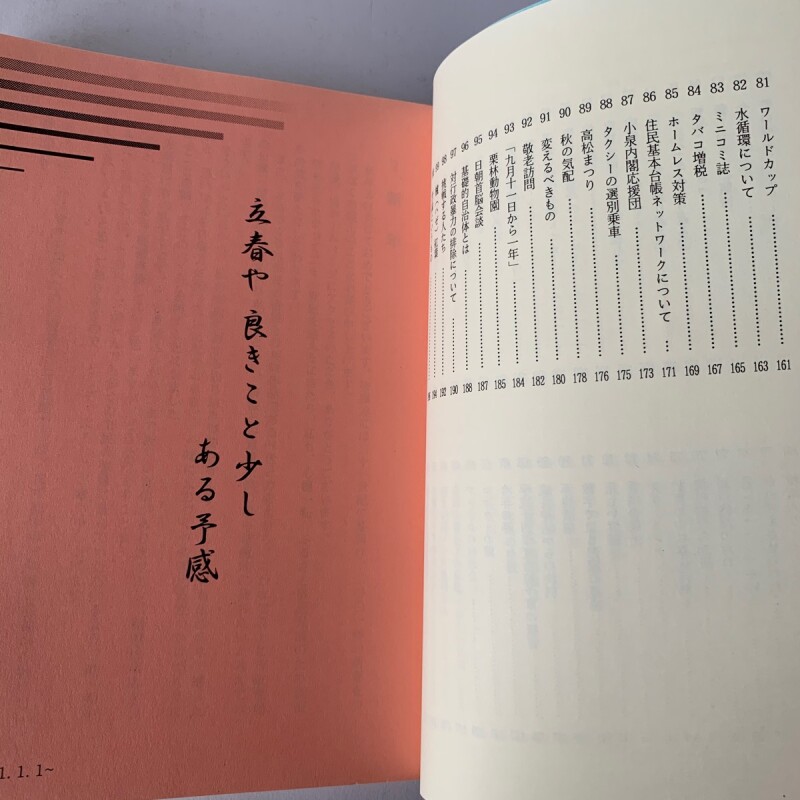 81 ワールドカップ 161
82 水循環について 163
83 ミニコミ誌 165
84 タバコ増税 167
85 ホームレス対策 169
86 住民基本台帳ネットワークについて 171
87 小泉内閣応援団 173
88 タクシーの選別乗車 175
89 高松まつり 176
90 秋の気配 178
91 変えるべきもの 180
92 敬老訪問 182
93 「九月十一日から一年」 184
94 栗林動物園 185
95 日朝首脳会談 187
96 基礎的自治体とは 188
97 対行政暴力の排除について 190
98 挑戦する人たち 192
194
立春や 良きこと少し
ある予感
1. 1. 1~